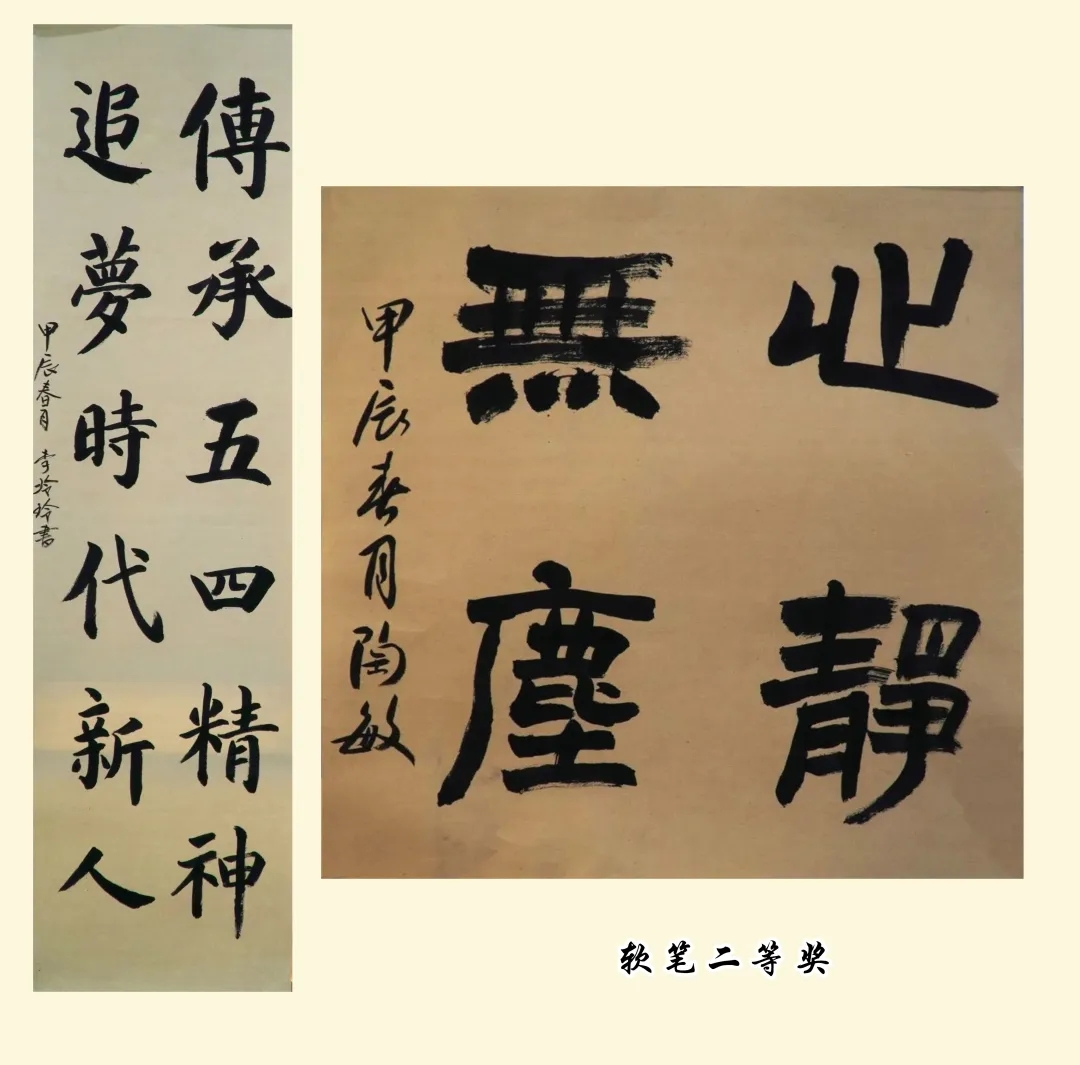 傳承五四精神
追夢時代新人
甲辰春月 李玲玲書
心靜
無塵
甲辰春月陶敏
软笔二等奖